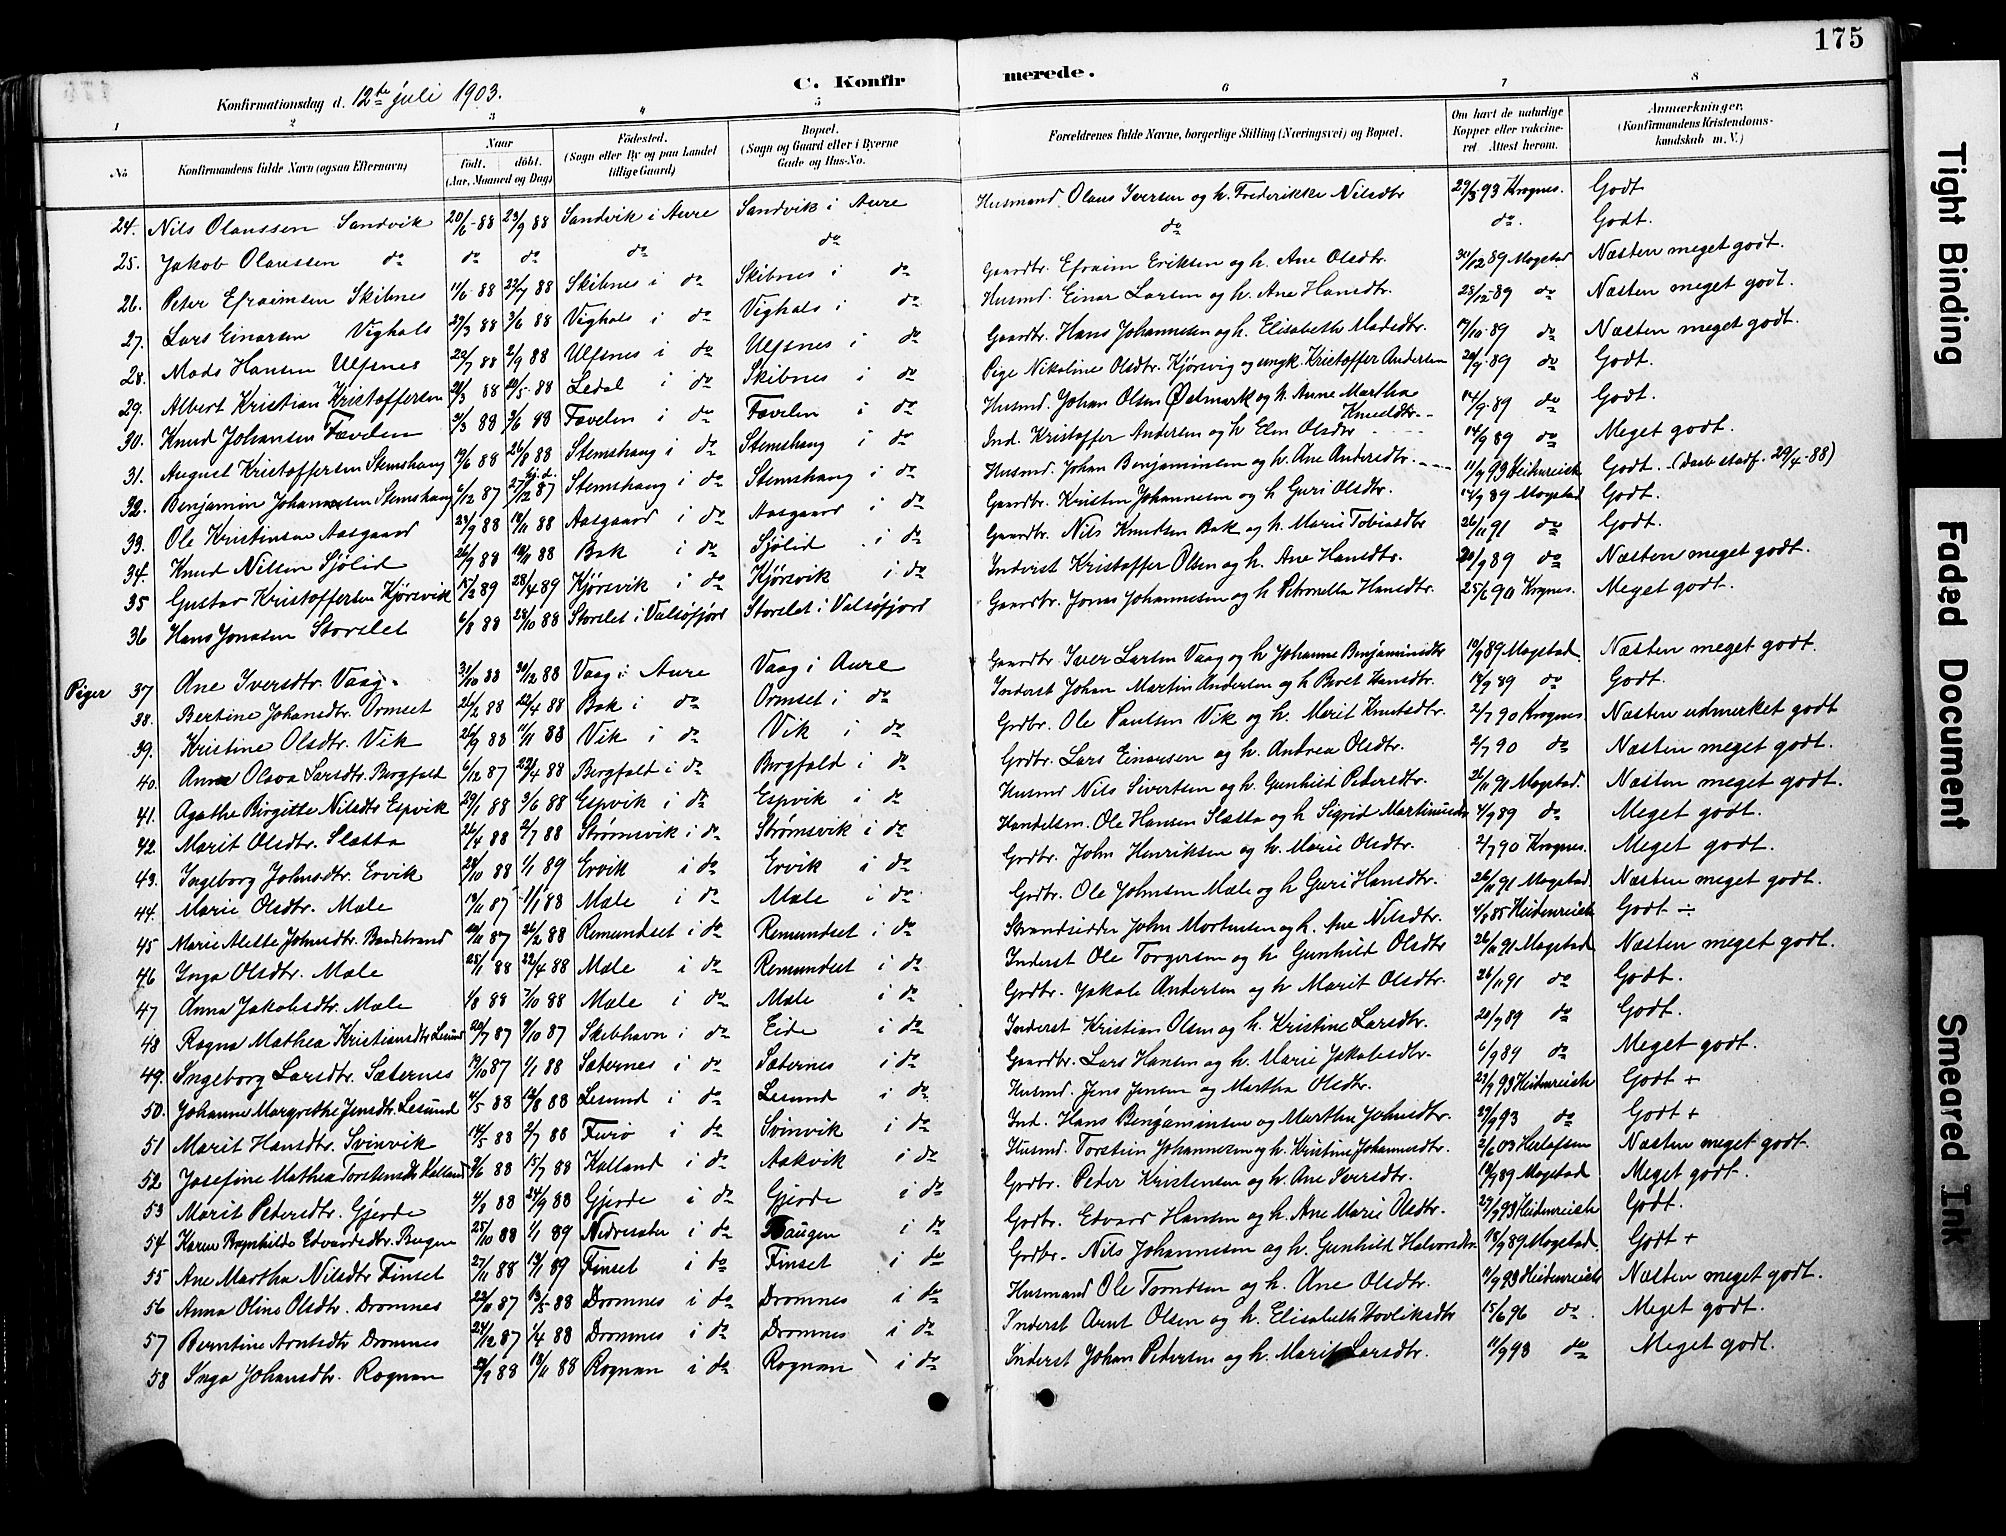 175
C. Konfirmerede.
Konfirmationsdag d. 12te juli 1903.
1 2 3 4 5 6 7 8
No Konfirmandens fulde Navn (ogsaa Efternavn) Naar født. døbt. (Aar, Maaned og Dag) Fødested. (Sogn eller By og paa Landet tillige Gaard) Bopæl. (Sogn og Gaard eller i Byerne Gade og Hus-No. Forældrenes fulde Navne, borgerlige Stilling (Næringsvei) og Bopæl. Om havt de naturlige Kopper eller vakcineret Attest herom. Anmærkninger. (Konfirmandens Kristendomskundskab m. V.)
24. Nils Olaussen Sandvik 20/6-88 23/9 88 Sandvik i Aure Sandvik i Aure Husmand Olaus Iversen og h. Frederikke Nilsdtr 29/3 93 Krognes. Godt
25. Jakob Olaussen do do do do do do do. Godt.
26. Peter Efraimsen Skibnes 11/6-88 22/7 88 Skibnes i do Skibnes i do Gaardbr. Efraim Eriksen og h. Ane Olsdtr. 31/12 89 Mogstad Næsten meget godt.
27. Lars Einarsen Vighals 27/3 88 3/6 88 Vighals i do Vighals i do Husmd. Einar Larsen og h. Ane Hansdtr. 28/12-89 do Næsten meget godt.
28. Mads Hansen Ulfsnes 22/7 88 2/9 88 Ulfsnes i do Ulfsnes i do Gaardbr. Hans Johannesen og h. Elisabeth Madsdtr. 17/10-89 do Næsten meget godt.
29. Albert Kristian Kristoffersen 21/3 88 20/5-88 Ledal i do Skibnes i do Pige Nikoline Olsdtr. Kjørsvig og ungk. Kristoffer Andersen 20/9-89 do Godt.
30. Knud Johansen Fævelen 31/3 88 3/6 88 Fævelen i do Fævelen i do Husmd. Johan Olsen Ødemark og h. Anne Martha Knudsdtr. 14/9-89 do Godt.
31. August Kristoffersen Stemshaug 19/6 88 26/8 88 Stemshaug i do Stemshaug i do Ind. Kristoffer Andersen og h Elen Olsdtr 14/9 89 do Meget godt.
32. Benjamin Johannesen Stemshaug 5/12 87 27/12 87 hj.d. Stemshaug i do Stemshaug i do Husmd. Johan Benjaminsen og h. Ane Andersdtr. 11/9 93 Heidenreich Godt. (daab stadf. 29/4-88)
33. Ole Kristensen Aasgaard 24/9 88 18/11 88 Aasgaard i do Aasgaard i do Gaardbr. Kristen Johannesen og h Guri Olsdtr. 14/9 89 Mogstad Godt.
34. Knud Nilsen Sjølid 26/9 88 18/11 88 Bak i do Sjølid i do Gaardbr. Nils Knudsen Bak og h. Marit Tobiasdtr 26/11 91 do Godt.
35 Gustav Kristoffersen Kjørsvik 17/2 89 28/4 89 Kjørsvik i do Kjørsvik i do Indvist Kristoffer Olsen og h. Ane Hansdtr. 20/9 89 do Næsten meget godt.
36 Hans Jonasen Storslet 6/8 88 28/10 88 Storslet i Valsøfjord Storslet i Valsøfjord Gaardbr. Jonas Johannesen og h Petronella Hansdtr. 25/6 90 Krognes. Meget godt.
Piger 37 Ane Iversdtr. Vaag. 31/10 88 30/12 88 Vaag i Aure Vaag i Aure Gaardbr Iver Larsen Vaag og h Johanne Benjaminsdtr 19/9 89 Mogstad Næsten meget godt.
38. Bertine Johansdtr. Ormset 26/2 88 22/4 88 Bak i do Ormset i do Inderst Johan Martin Andersen og h Beret Hansdtr. 14/9 89 do Godt.
39. Kristine Olsdtr. Vik 26/9 88 11/11 88 Vik i do Vik i do Grdbr. Ole Paulsen Vik og h. Marit Knutsdtr. 2/7 90 Krognes. Næsten udmerket godt
40. Anne Olava Larsdtr. Bergfald 6/12 87 22/4 88 Bergfald i do Bergfald i do Grdbr. Lars Einarsen og h. Andrea Olsdtr. 2/7 90 do Næsten meget godt.
41. Agathe Birgitte Nilsdtr Espvik 29/1 88 3/6 88 Espvik i do Espvik i do Husmd Nils Sivertsen og h. Gunhild Pedersdtr. 26/11 91 Mogstad. Næsten meget godt.
42. Marit Olsdtr. Slætta 26/4 88 2/7 88 Strømsvik i do Strømsvik i do Handelsm. Ole Hansen Slætta og h Sigrid Martinusdtr 4/9 89 do Meget godt.
43. Ingeborg Johnsdtr. Ervik 28/10 88 1/1 89 Ervik i do Ervik i do Grdbr. John Henriksen og h. Marie Olsdtr. 2/7 90 Krognes. Meget godt.
44. Marie Olsdtr. Mæle 19/11 87 1/1 88 Mæle i do Mæle i do Grdbr. Ole Johnsen Mæle og h Guri Hansdtr. 26/11 91 Mogstad. Næsten meget godt.
45 Marie Alette Johnsdtr. Baadstrand 20/11 87 26/2 88 Remundset i do Remundset i do Strandsidder John Mortensen og h. Ane Nilsdtr. 4/8 85 Heidenreich Godt ÷
46 Inga Olsdtr. Mæle 25/1 88 22/4 88 Mæle i do Remundset i do Inderst Ole Torgersen og h Gunhild Olsdtr 26/11 91 Mogstad Næsten meget godt.
47 Anna Jakobsdtr. Mæle 1/8 88 7/10 88 Mæle i do Mæle i do Grdbr. Jakob Andersen og h Marit Olsdtr. 26/11 91 do Godt.
48 Ragna Mathea Kristiansdtr Lesund 20/7 87 9/10 87 Skibhavn i do Eide i do Inderst Kristian Olsen og h. Kristine Larsdtr. 20/9 89 do Godt.
49. Ingeborg Larsdtr. Sæternes 19/10 87 1/1 88 Sæternes i do Sæternes i do Gaardbr. Lars Hansen og h. Marie Jakobsdtr. 6/9 89 do Meget godt.
50. Johanne Margrethe Jensdtr. Lesund 4/5 88 12/8 88 Lesund i do Lesund i do Husmd. Jens Jensen og Martha Olsdtr. 23/9 93 Heidenreich Godt +
51 Marit Hansdtr. Svinvik 14/5 88 2/7 88 Furø i do Svinvik i do Ind. Hans Benjaminsen og Martha Johnsdtr. 27/9 93 do Godt +
52 Josefine Mathea Torstensdtr Kalland 9/6 88 15/7 88 Kalland i do Aakvik i do Husmd. Torstein Johannesen og h. Kristine Johannesdtr. 2/6 03 Herlofsen Næsten meget godt.
53 Marit Petersdtr. Gjerde 4/8 88 24/9 88 Gjerde i do Gjerde i do Grdbr. Peder Kristensen og h. Ane Iversdtr. 19/9 89 Mogstad Meget godt.
54 Karen Bergnhilde Edvardsdtr. Bugen 25/10 88 1/1 89 Nedresæter i do Haugen i do Grdbr. Edvard Hansen og h. Ane Marie Olsdtr. 27/9 93 Heidenreich Godt.
55 Ane Martha Nilsdtr Finset 27/11 88 13/1 89 Finset i do Finset i do Grdbr. Nils Johannesen og h. Gunhild Halvorsdtr 18/9 89 Mogstad. Godt +
56 Anna Oline Olsdtr. Dromnes 22/11 87 13/5-88 Dromnes i do Dromnes i do Husmand Ole Trondsen og h. Ane Olsdtr. 11/9 93 Heidenreich Næsten meget godt.
57 Berntine Arntsdtr Dromnes 24/12 87 1/4 88 Dromnes i do Dromnes i do Inderst Arnt Olsen og h. Elisabeth Havliksdtr 15/6 96 do Meget godt.
58 Inga Johansdtr. Rognan 28/9 88 18/11 88 Rognan i do Rognan i do Inderst Johan Pedersen og h. Marit Larsdtr. 11/9 93 do Meget godt.
Tight Binding
Faded Document
Smeared Ink